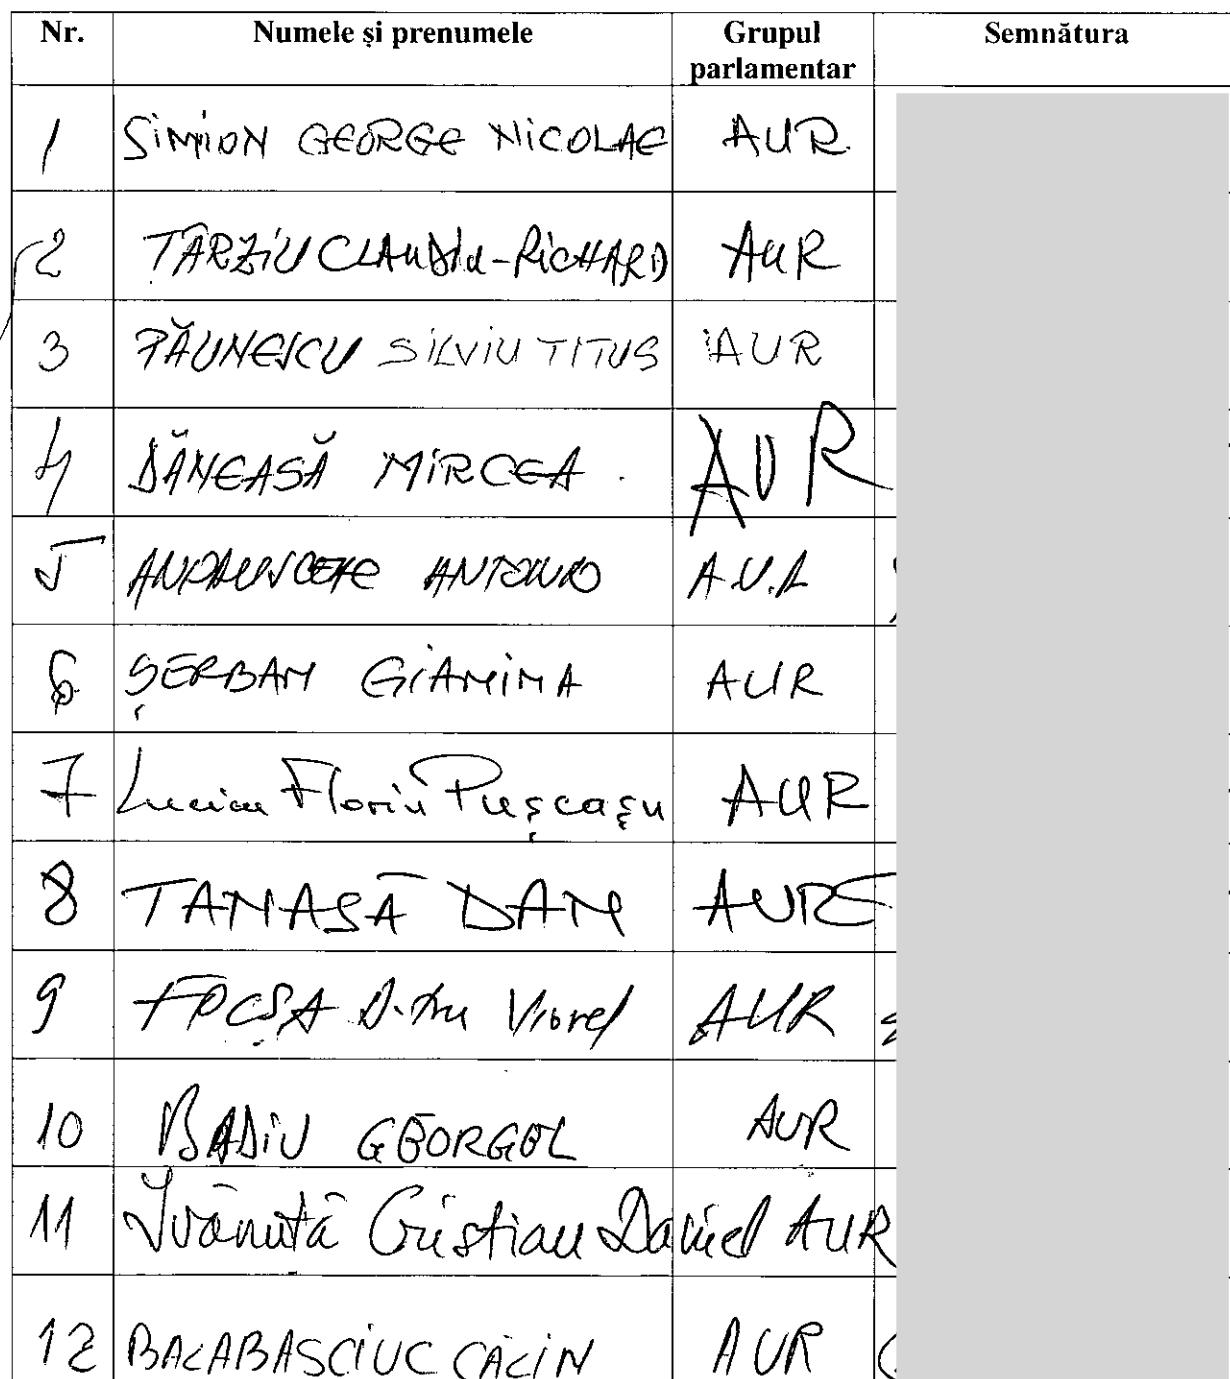 Nr. Numele și prenumele Grupul parlamentar Semnătura
1 SIMION GEORGE NICOLAE AUR
2 TÂRZIU CLAUDIU-RICHARD AUR
3 PĂUNESCU SILVIU TITUS AUR
4 DĂNEASĂ MIRCEA AUR
5 ANDRUSCEAC ANTONIO A.U.R
6 ȘERBAN GIANINA AUR
7 Lucian Florin Pușcașu AUR
8 TANASĂ DAN AUR
9 FOCȘA Viorel AUR
10 BADIU GEORGEL AUR
11 Ivănuță Cristian Daniel AUR
12 BALABASCIUC CĂLIN AUR